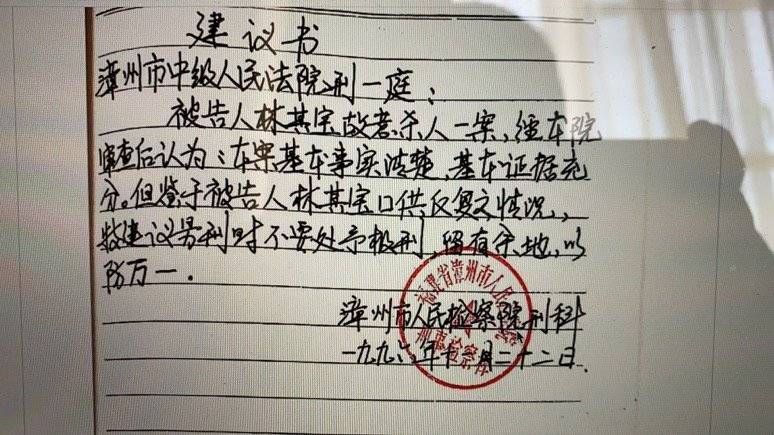 建议书
漳州市中级人民法院刑一庭：
被告人林其宗故意杀人一案，经本院
审查后认为：本案基本事实清楚，基本证据充
分。但鉴于被告人林其宗口供反复之情况，
故建议量刑时不要处予极刑，留有余地，以
防万一.
漳州市人民检察院刑科
一九九六年十月二十二日.
福建省漳州市人民